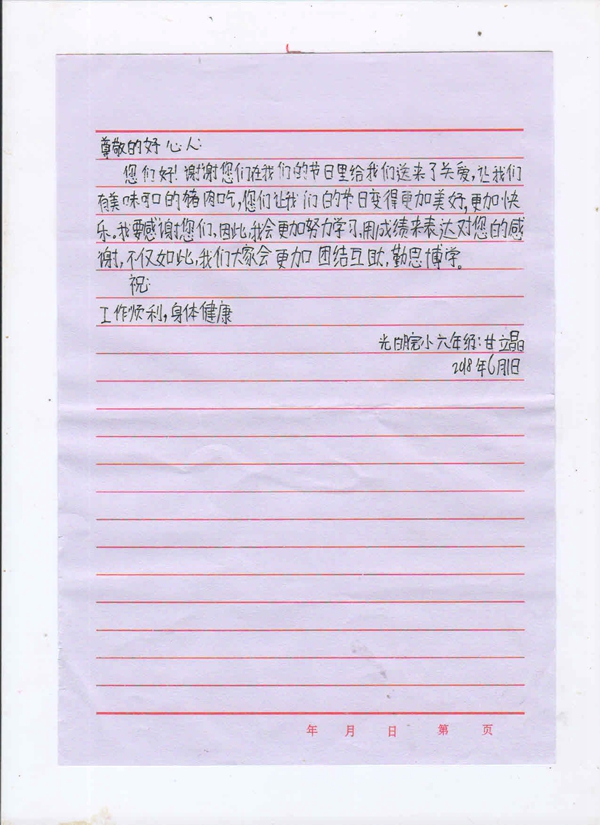 尊敬的好心人:
您们好!谢谢您们在我们的节日里给我们送来了关爱,让我们
有美味可口的猪肉吃,您们让我们的节日变得更加美好,更加快
乐。我要感谢您们,因此,我会更加努力学习,用成绩来表达对您的感
谢,不仅如此,我们大家会更加团结互助,勤思博学。
祝:
工作顺利,身体健康
小六年级:甘立晶
2018年6月1日
年 月 日 第 页